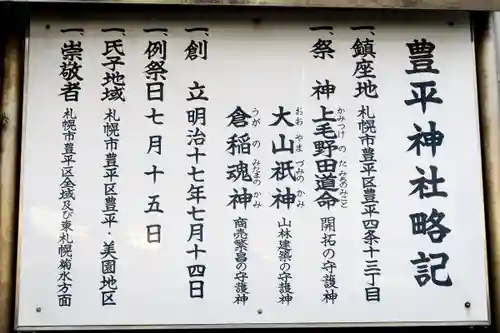 豊平神社略記
一、鎮座地 札幌市豊平区豊平四条十三丁目
一、祭神 上毛野田道命 開拓の守護神
かみつけ の たみちのみこと
大山祇神 山林建築の守護神
おお やま づみの かみ
倉稲魂神 商売繁昌の守護神
うが の みたまの かみ
一、創立 明治十七年七月十四日
一、例祭日 七月十五日
一、氏子地域 札幌市豊平区豊平・美園地区
一、崇敬者 札幌市豊平区全域及び東札幌菊水方面